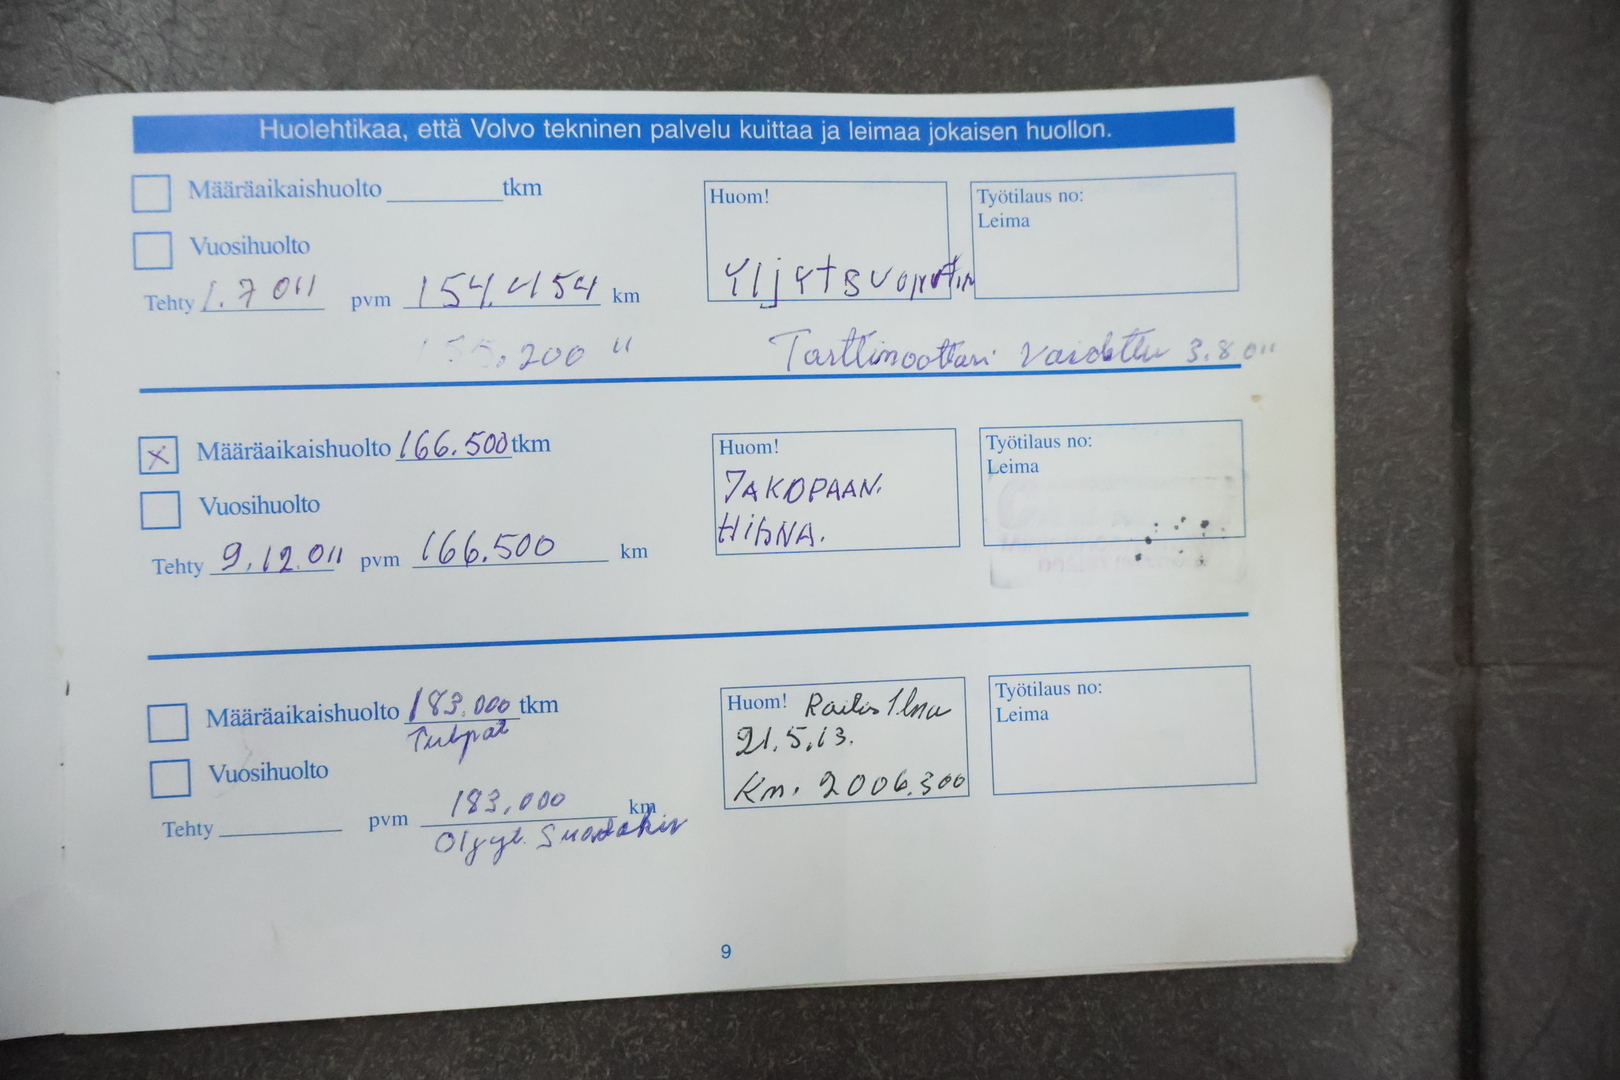 Huolehtikaa, että Volvo tekninen palvelu kuittaa ja leimaa jokaisen huollon.
Määräaikaishuolto tkm
Vuosihuolto
Tehty 1.7 011 pvm 154.454 km
Huom!
Työtilaus no:
Leima
.200 "
3.8 011
Määräaikaishuolto 166.500 tkm
Vuosihuolto
Tehty 9.12.011 pvm 166.500 km
Huom!
JAKOPAAN.
HIHNA.
Työtilaus no:
Leima
Määräaikaishuolto 183.000 tkm
Tulpat
Vuosihuolto
Tehty pvm 183.000 km
Huom!
21.5.13.
Km. 2006.300
Työtilaus no:
Leima
9